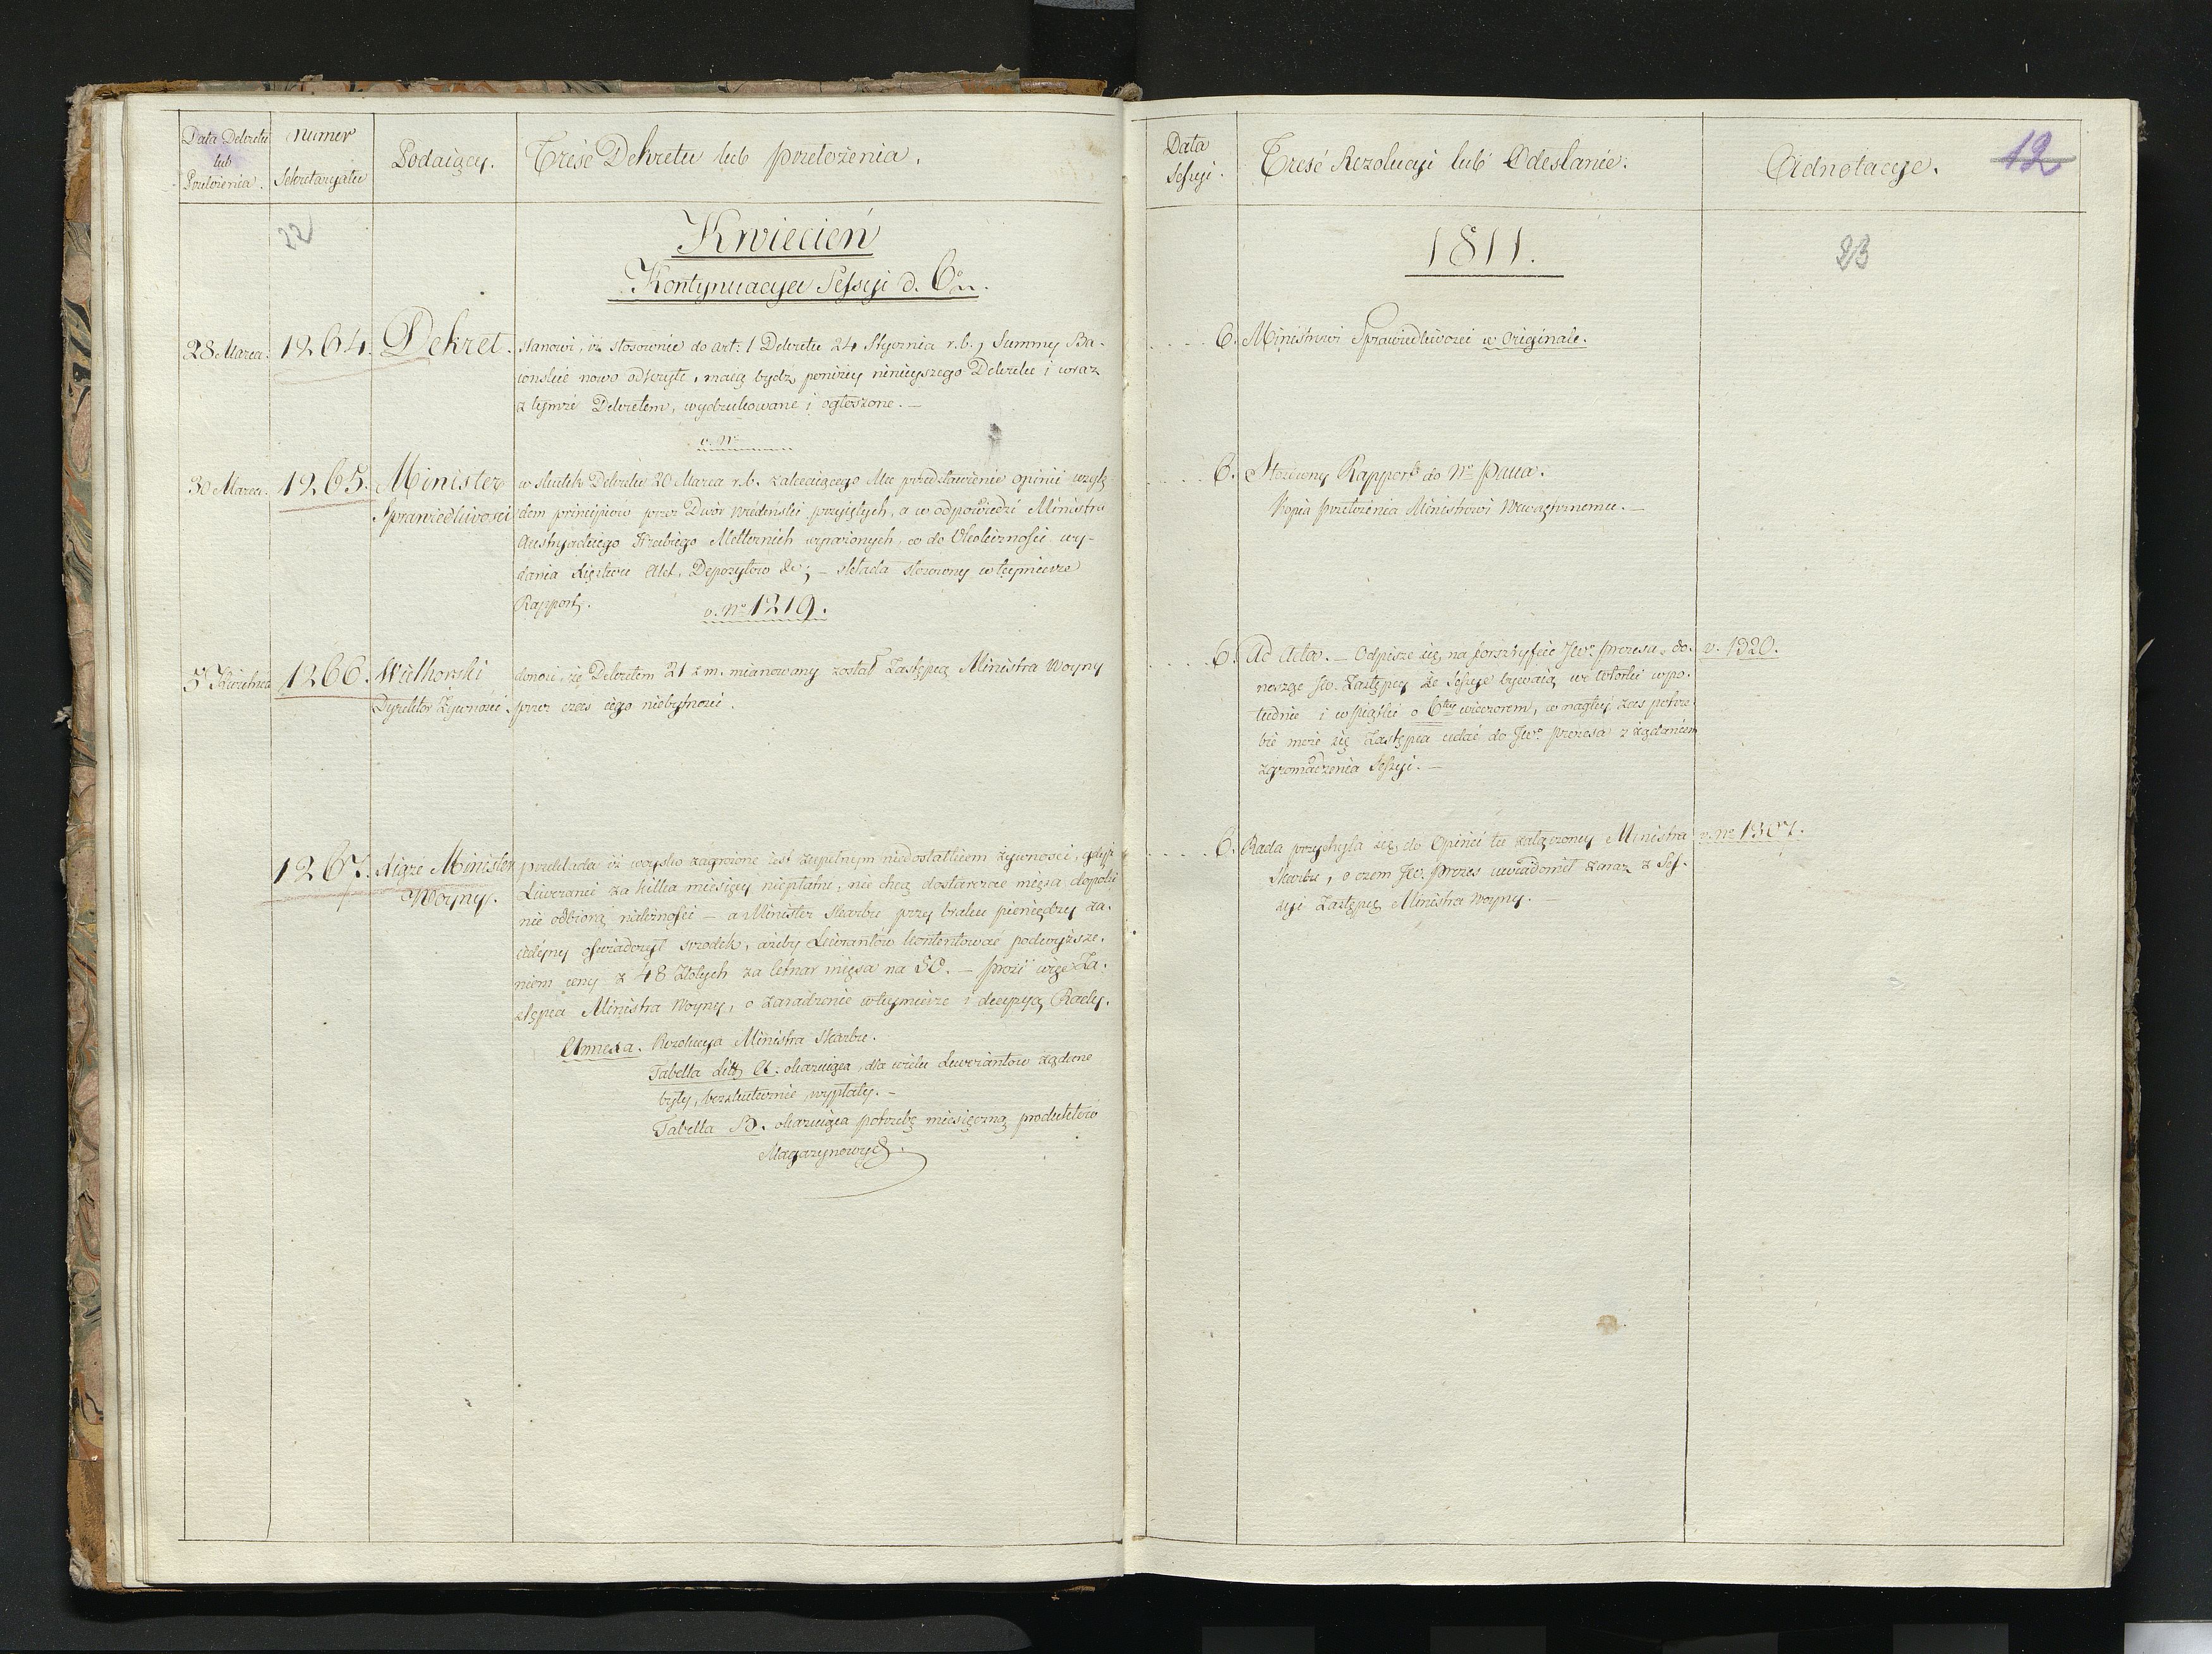 Data Dekretu
lub
Przełożenia.
Numer
Sekretaryatu
Podaiący.
Treść Dekretu lub przełożenia.
22
Kwiecień
Kontynuacya Sessyi d. 6°
28 Marca. 1264. Dekret. stanowi, iż stosownie do art: 1 Dekretu 24 Stycznia r.b., Summy Ba-
iońskie nowo odkryte, maią bydź poniżey ninieyszego Dekretu i wraz
z tymże Dekretem, wydrukowane i ogłoszone. —
v. N°
30 Marca. 1265. Minister
Sprawiedliwości
w skutek Dekretu 20 Marca r.b. zalecaiącego Mu przedstawienie opinii wzglę
dem principiow przez Dwór Wiedeński przyiętych, a w odpowiedzi Ministra
Austryackiego Hrabiego Metternich wyrażonych, co do Okoliczności wy-
dania Xiąstwu Akt, Depozytow &c; — składa stosowny w teymierze
Rapport.
v. N° 1219.
5 Kwietnia 1266. Wielhorski
Dyrektor Żywności.
donosi, iż Dekretem 21 z.m. mianowany został Zastępcą Ministra Woyny
przez czas iego niebytności.
1267. Tenże Minister
Woyny.
przekłada iż woysko zagrożone iest zupełnym niedostatkiem żywności, gdyż
Liweranci za kilka miesięcy niepłatni, nie chcą dostarczać mięsa dopoki
nie odbiorą należności — a Minister Skarbu przy braku pieniędzy za-
iedyny oświadczył srodek, ażeby Liwerantów kontentować podwyższe-
niem ceny z 48 Złotych za Cetnar mięsa na 50. — prosi więc Za-
stępca Ministra Woyny, o zaradzenie w teymierze i decyzyą Rady.
Annexa. Rezolucya Ministra Skarbu.
Tabella Litt A. okazuiąca, dla wielu Liwerantow żądane
były, bezskutecznie wypłaty. —
Tabella B. okazuiąca potrzebę miesięczną produktów
Magazynowych.
Data
Sessyi.
Treść Rezolucyi lub Odesłanie.
Adnotacye.
12
1811.
23
6. Ministrowi Sprawiedliwości w Originale.
6. Stosowny Rapport do N. Pana.
Kopia przełożenia Ministrowi Wewnętrznemu. —
6. Ad Acta. — Odpisze się na forszryfcie JW. Prezesa, do-
nosząc JW. Zastępcy że Sessye bywaią we Wtorki w po-
łudnie i w piątki o 6tey wieczorem, w nagłey zaś potrze-
bie może się Zastępca udać do JW. Prezesa z żądaniem
zgromadzenia Sessyi. —
v. 1320.
6. Rada przychyla się do Opinii tu załączoney Ministra
Skarbu, o czem JW. Prezes uwiadomił zaraz z Ses-
syi Zastępcę Ministra Woyny. —
v. N° 1307.